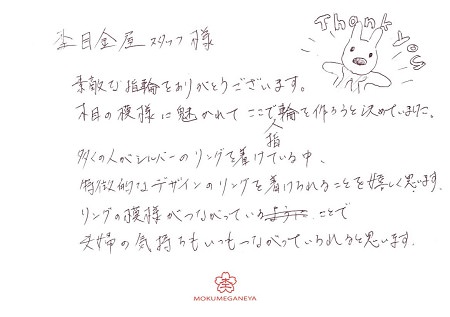 杢目金屋スタッフ様
Thank you
素敵な指輪をありがとうございます。
木目の模様に魅かれてここで指輪を作ろうと決めていました。
多くの人がシルバーのリングを着けている中、
特徴的なデザインのリングを着けられることを嬉しく思います。
リングの模様がつながっていることで
夫婦の気持ちもいつもつながっていられると思います。
MOKUMEGANEYA